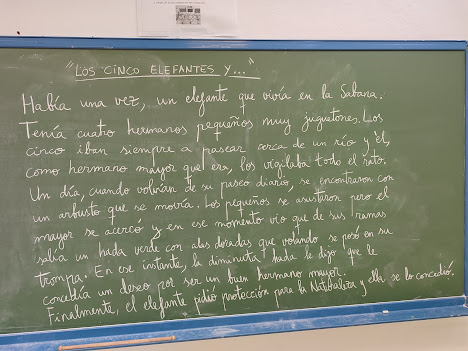 "LOS CINCO ELEFANTES Y..."
Había una vez, un elefante que vivía en la Sabana.
Tenía cuatro hermanos pequeños muy juguetones. Los
cinco iban siempre a pasear cerca de un río y él,
como hermano mayor que era, los vigilaba todo el rato.
Un día, cuando volvían de su paseo diario, se encontraron con
un arbusto que se movía. Los pequeños se asustaron pero el
mayor se acercó y en ese momento vio que de sus ramas
salía un hada verde con alas doradas que volando se posó en su
trompa. En ese instante, la diminuta hada le dijo que le
concedía un deseo por ser un buen hermano mayor.
Finalmente, el elefante pidió protección para la Naturaleza y ella se lo concedió.